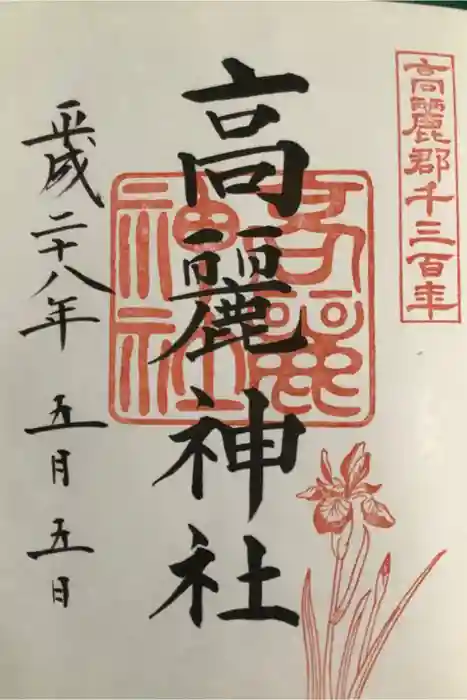 高麗郡千三百年
高麗神社
平成二十八年 五月 五日
高麗
神社